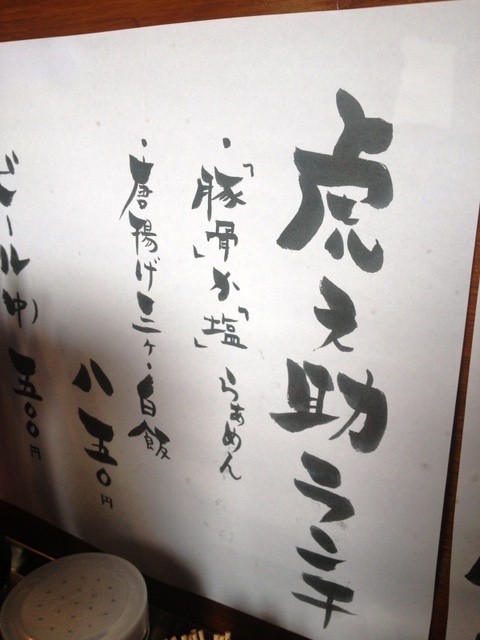 虎之助ランチ
・「豚骨」か「塩」らぁめん
・唐揚げ三ヶ・白飯
八五0円
ビール(中)五00円